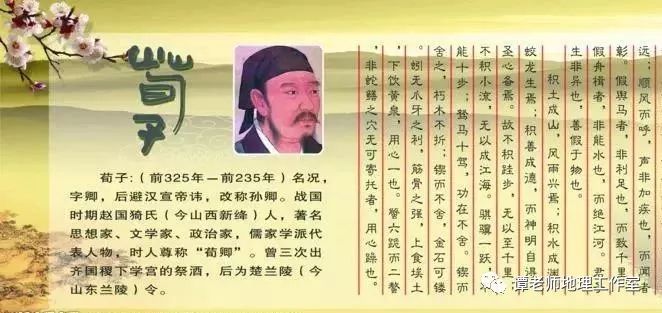 荀子
荀子:(前325年—前235年)名况，
字卿，后避汉宣帝讳，改称孙卿。战国
时期赵国猗氏（今山西新绛）人，著名
思想家、文学家、政治家，儒家学派代
表人物，时人尊称“荀卿”。曾三次出
齐国稷下学宫的祭酒，后为楚兰陵（今
山东兰陵）令。
远；顺风而呼，声非加疾也，而闻者
彰。假舆马者，非利足也，而致千里
假舟楫者，非能水也，而绝江河。君
生非异也，善假于物也。
积土成山，风雨兴焉；积水成渊
蛟龙生焉；积善成德，而神明自得
圣心备焉。故不积跬步，无以至千里
不积小流，无以成江海。骐骥一跃，不
能十步；驽马十驾，功在不舍。锲而
舍之，朽木不折；锲而不舍，金石可镂
蚓无爪牙之利，筋骨之强，上食埃土
下饮黄泉，用心一也。蟹六跪而二螯
，非蛇鳝之穴无可寄托者，用心躁也。
谭老师地理工作室